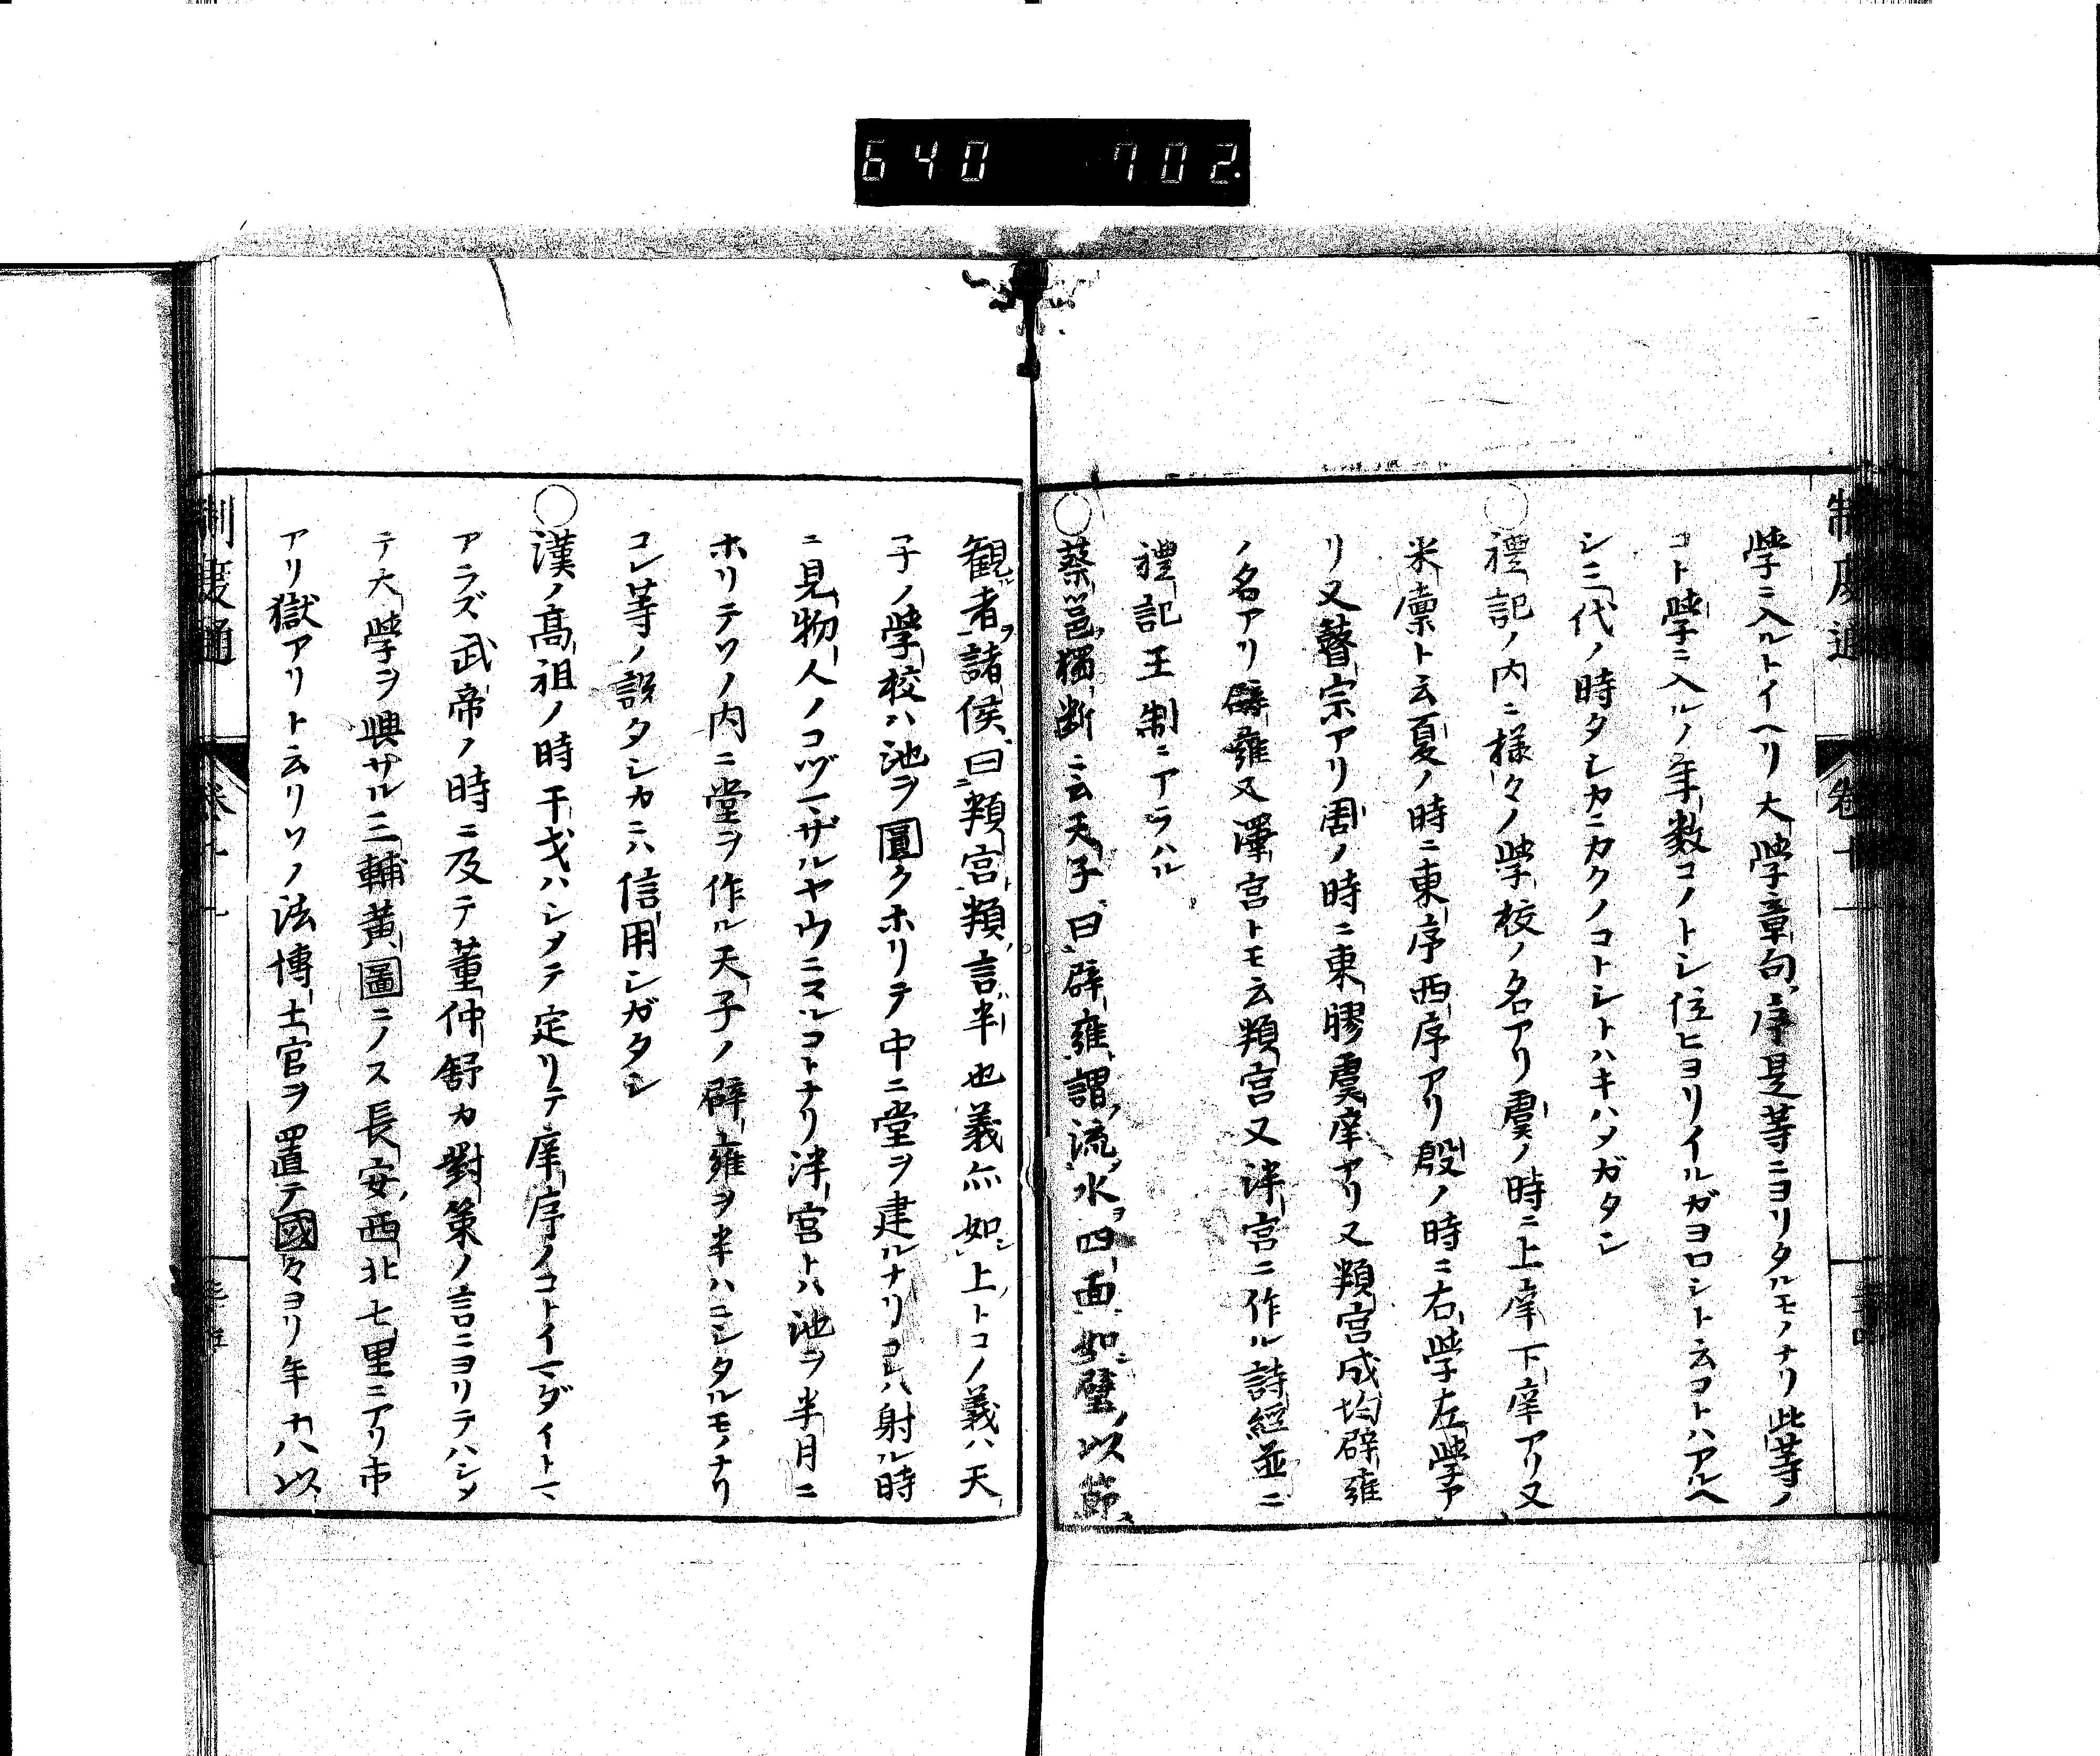 640 702.
制度通 卷十一
學ニ入ルトイヘリ大學章句序是等ニヨリタルモノナリ此等ノ
コト學ニ入ルノ年數コノトシ位ヒヨリイルガヨロシト云コトハアルヘ
シ三代ノ時タシカニカクノコトシトハキハメガタシ
○禮記ノ内ニ樣々ノ學校ノ名アリ虞ノ時ニ上庠下庠アリ又
米廩ト云夏ノ時ニ東序西序アリ殷ノ時ニ右學左學ア
リ又瞽宗アリ周ノ時ニ東膠虞庠アリ又頖宮成均辟雍
ノ名アリ辟雍又澤宮トモ云頖宮又泮宮ニ作ル詩經並ニ
禮記王制ニアラハル
○蔡邕獨斷ニ云天子曰辟雍謂流水四面如璧以節
観者諸侯曰頖宮頖言半也義亦如上トコノ義ハ天
子ノ學校ハ池ヲ圓クホリテ中ニ堂ヲ建ルナリコレハ射ル時
ニ見物人ノコヅマザルヤウニスルコトナリ泮宮トハ池ヲ半月ニ
ホリテソノ内ニ堂ヲ作ル天子ノ辟雍ヲ半ハニシタルモノナリ
コレ等ノ説タシカニハ信用シガタシ
○漢ノ高祖ノ時干戈ハシメテ定リテ庠序ノコトイマダイトマ
アラズ武帝ノ時ニ及テ董仲舒カ對策ノ言ニヨリテハシメ
テ大學ヲ興サル三輔黄圖ニノス長安西北七里ニアリ市
アリ獄アリト云リソノ法博士官ヲ置テ國々ヨリ年十八以
制度通 卷十一